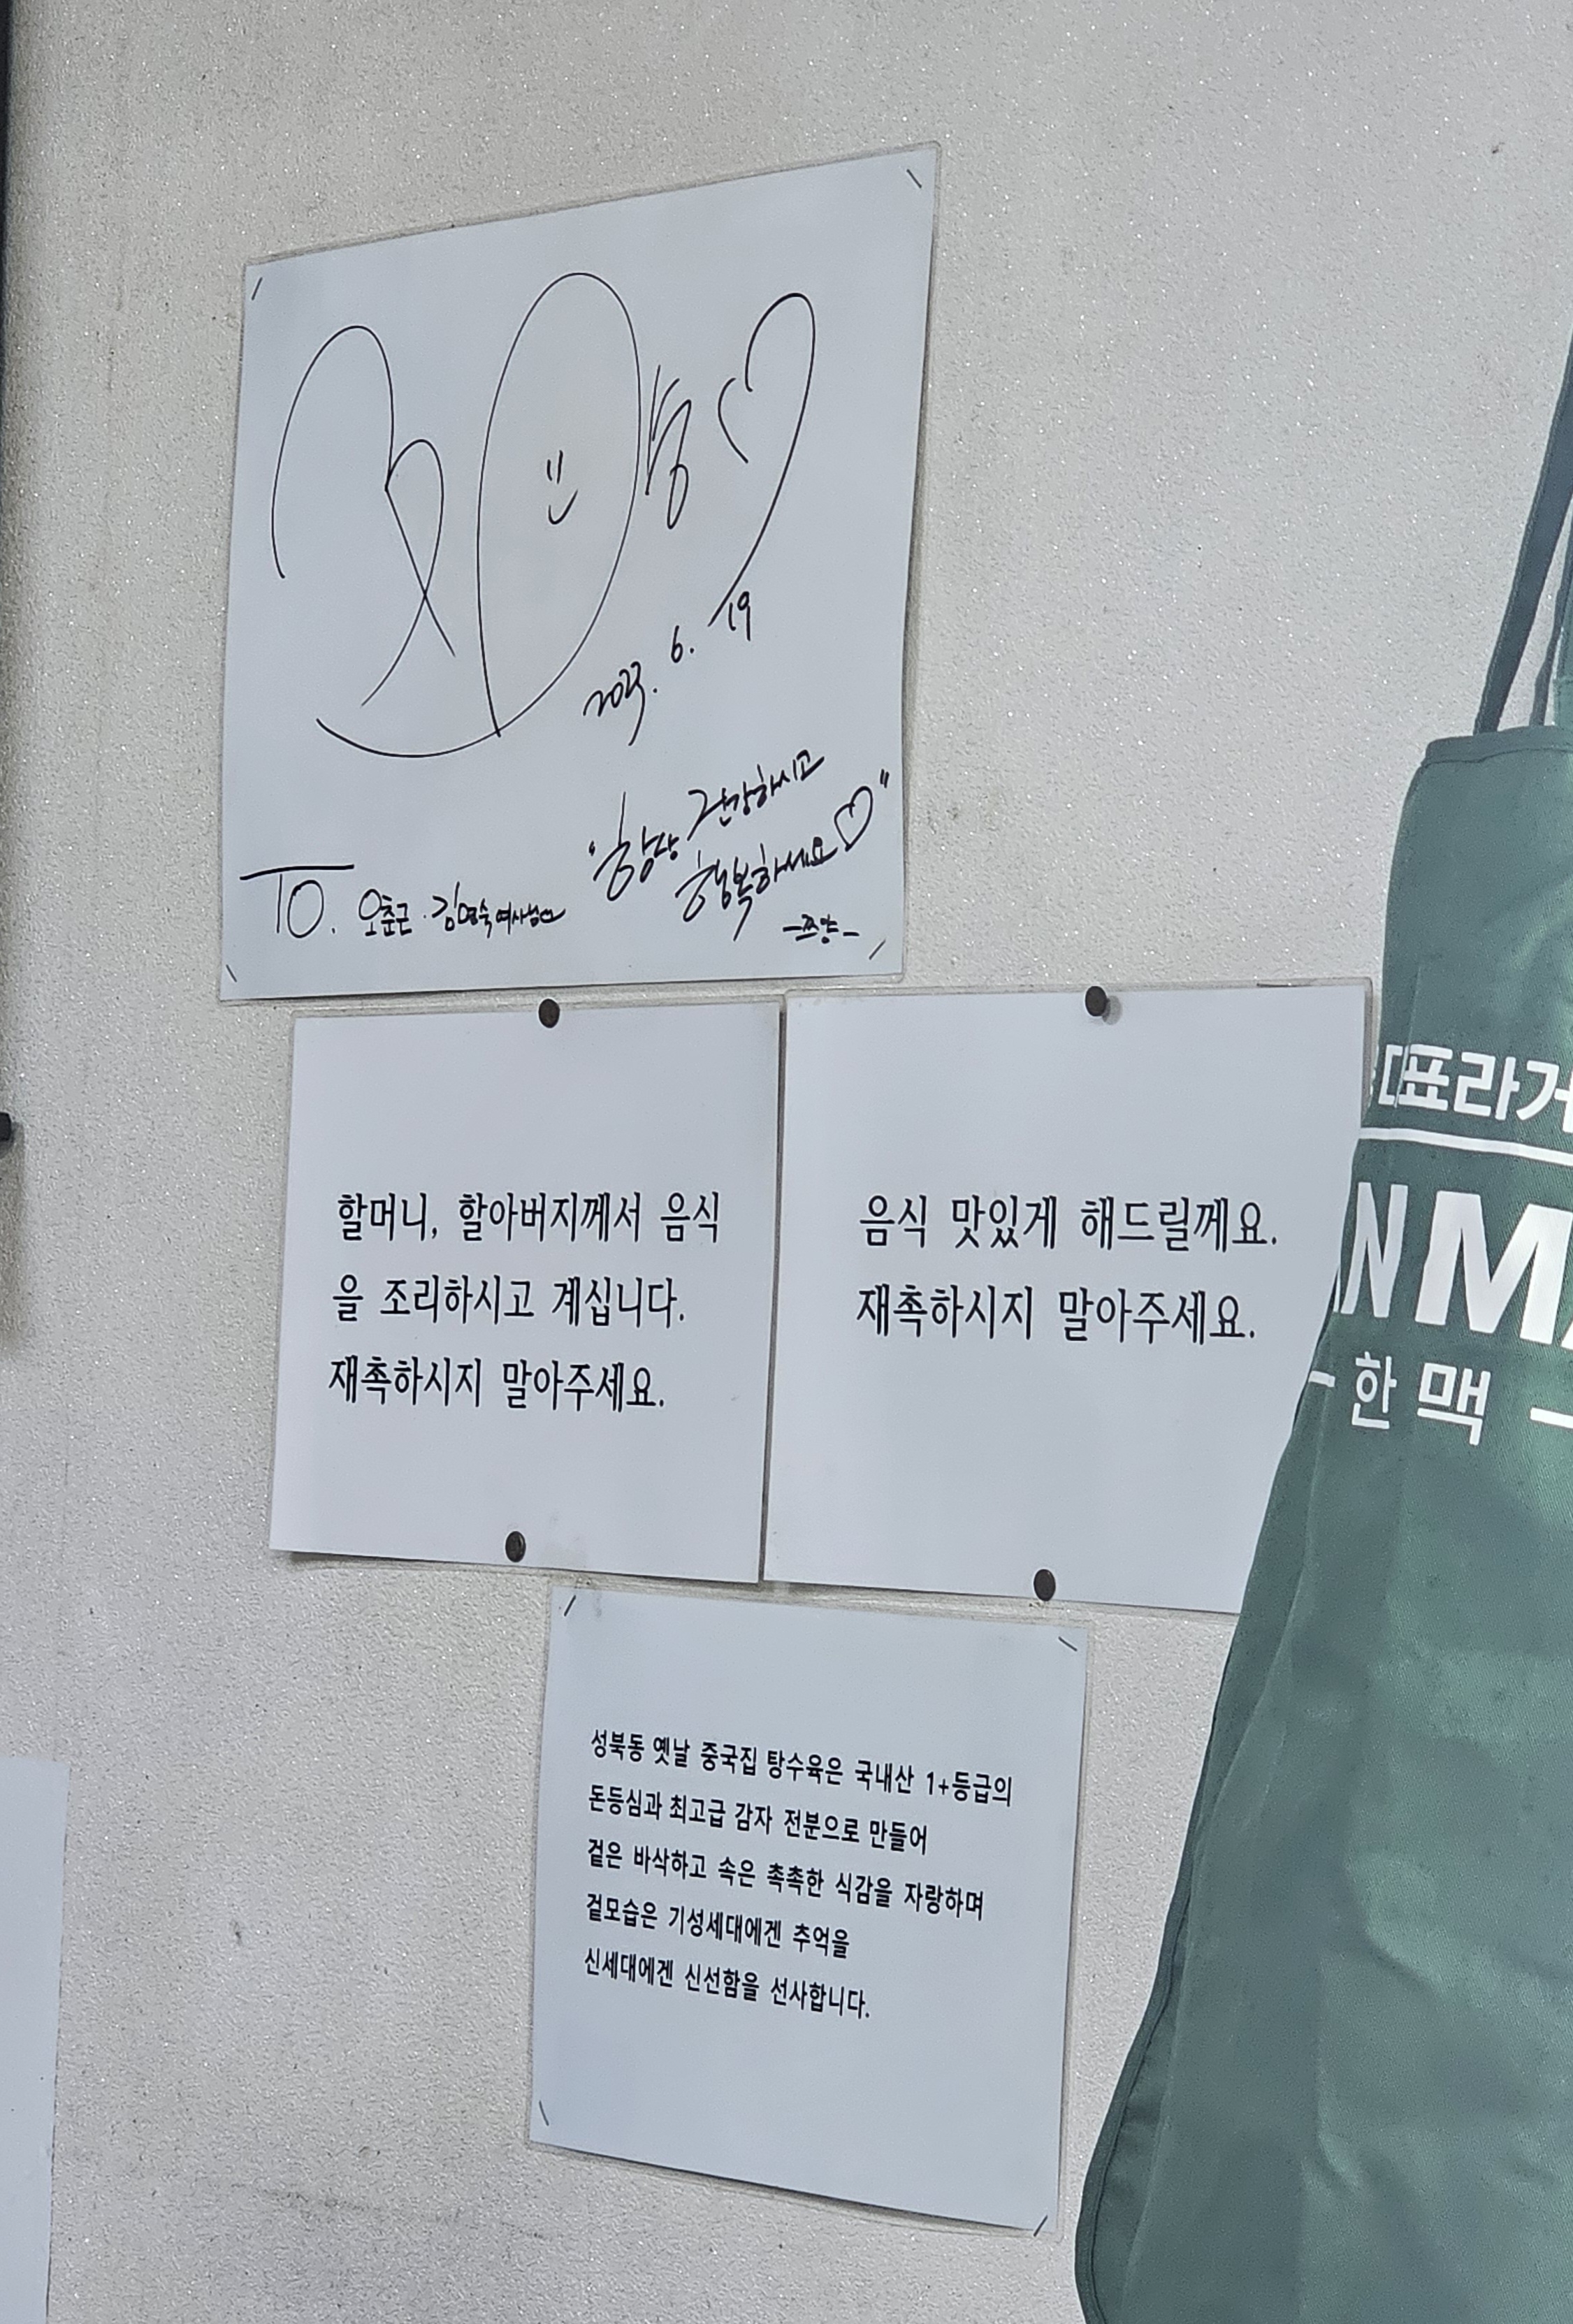 2023. 6. 19
"항상 건강하시고
행복하세요♡"
-쯔양-
TO. 오춘근 · 김영숙 여사님
할머니, 할아버지께서 음식
을 조리하시고 계십니다.
재촉하시지 말아주세요.
음식 맛있게 해드릴께요.
재촉하시지 말아주세요.
성북동 옛날 중국집 탕수육은 국내산 1+등급의
돈등심과 최고급 감자 전분으로 만들어
겉은 바삭하고 속은 촉촉한 식감을 자랑하며
겉모습은 기성세대에겐 추억을
신세대에겐 신선함을 선사합니다.
대표라거
NM
한맥